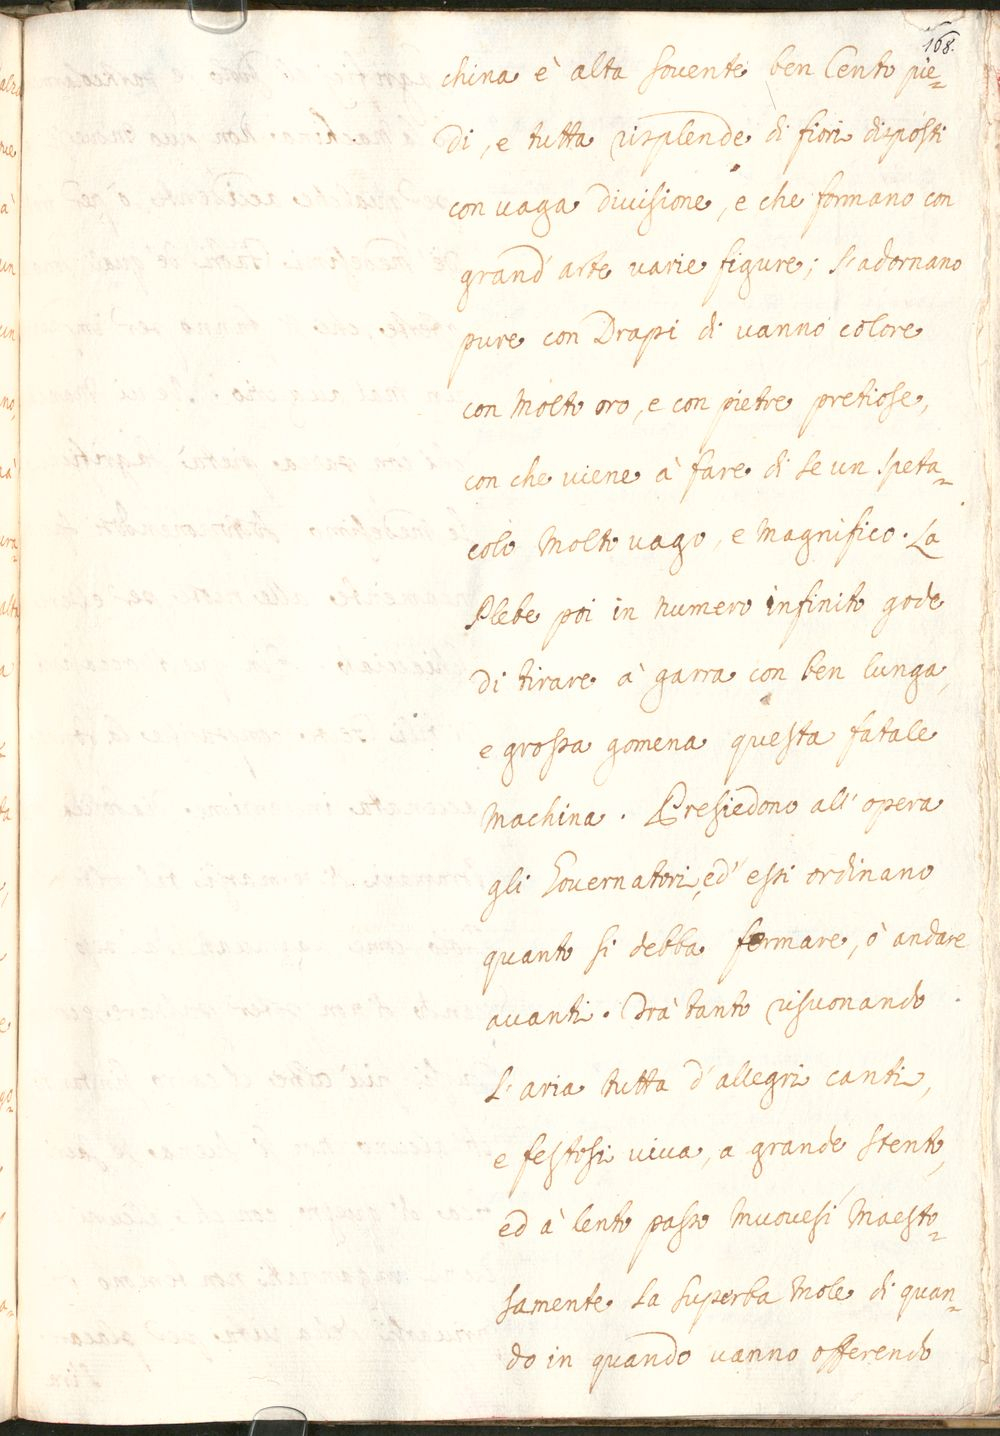 168.
china è alta sovente ben Cento pie-
di, e tutta risplende di fiori disposti
con vaga divisione, e che formano con
grand' arte varie figure; l'adornano
pure con Drapi di vanno colore
con molto oro, e con pietre pretiose,
con che viene à fare di se un speta-
colo molto vago, e magnifico. La
Plebe poi in numero infinito gode
di tirare à garra con ben lunga,
e grossa gomena questa fatale
Machina. Presiedono all' opera
gli Governatori, ed' essi ordinano
quanto si debba fermare, ò andare
avanti. Trà tanto risuonando
l'aria tutta d'allegri canti,
e festosi viva, a grande stento,
ed à lento passo muovesi Maesto-
samente la superba Mole di quan-
do in quando vanno offerendo